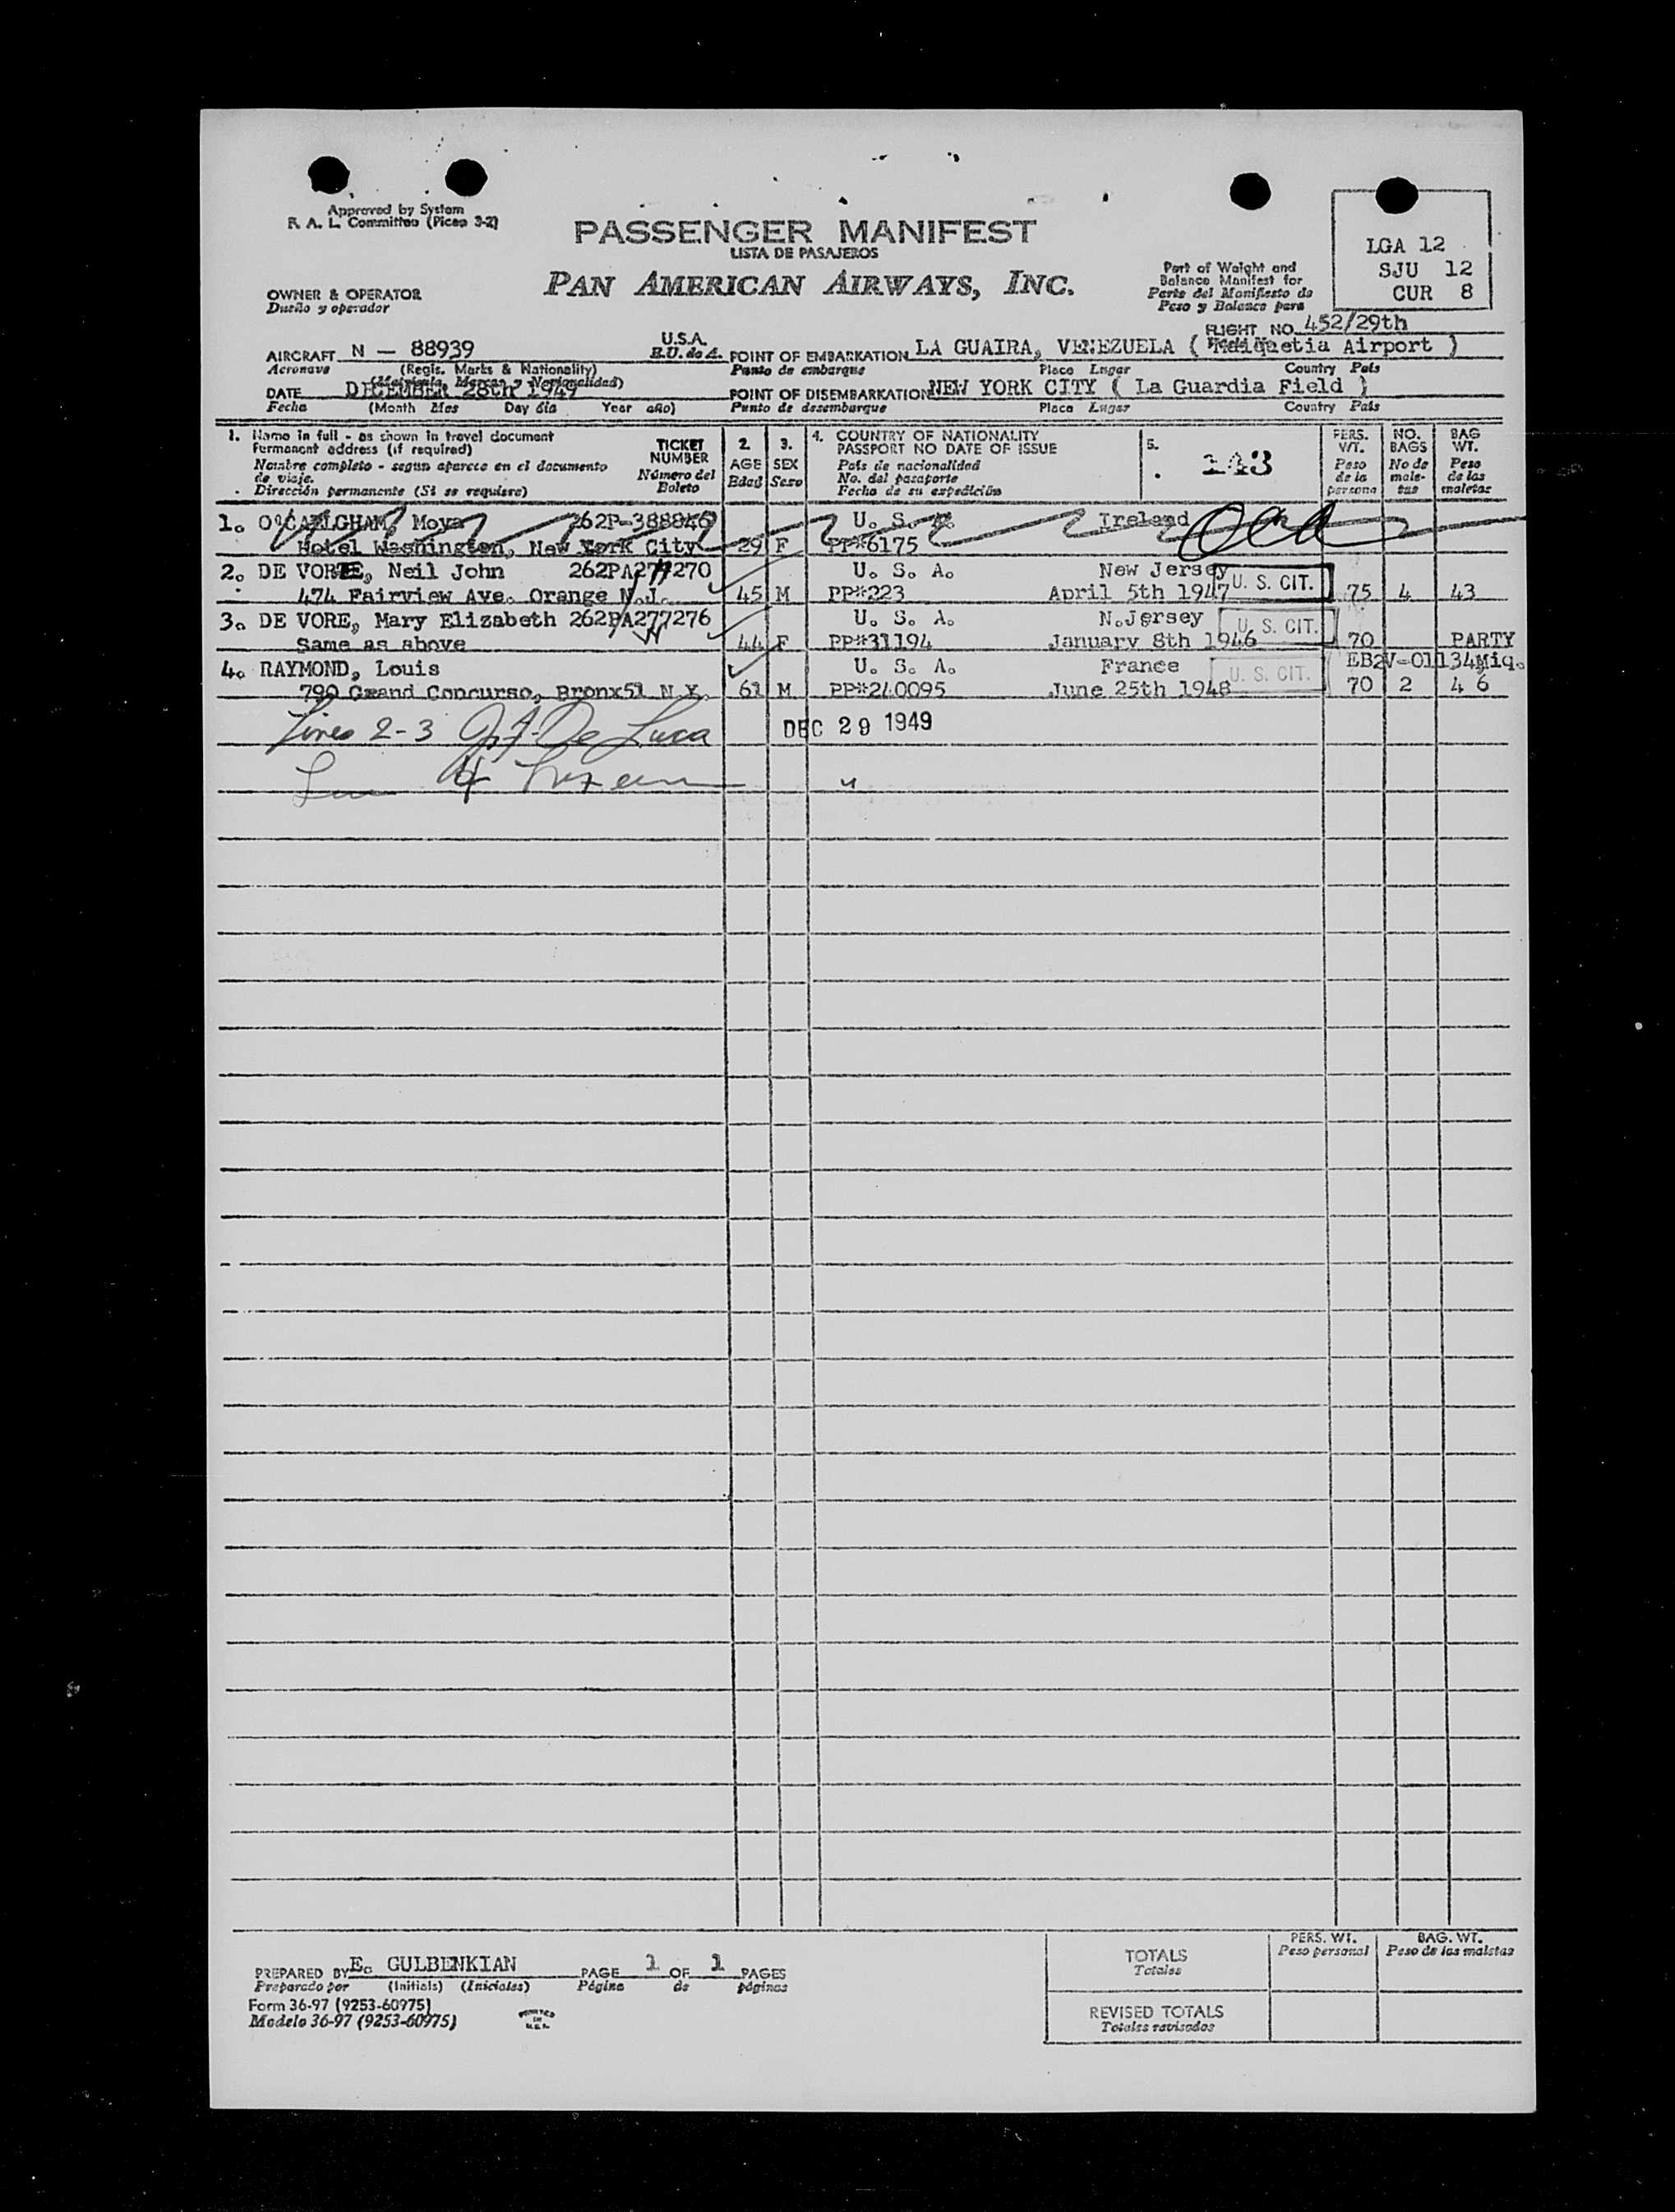 Approved by System
F. A. L. Committee (Picao 3-2)
PASSENGER MANIFEST
LISTA DE PASAJEROS
PAN AMERICAN AIRWAYS, INC.
LGA 12
SJU 12
CUR 8
Part of Weight and
Balance Manifest for
Parte del Manifiesto de
Peso y Balance para
OWNER & OPERATOR
Dueño y operador
FLIGHT NO. 452/29th
AIRCRAFT N — 88939 U.S.A. E.U. de A. POINT OF EMBARKATION LA GUAIRA, VENEZUELA ( Airport )
Aeronave (Regis. Marks & Nationality) Punto de embarque Place Lugar Country País
(Matrícula, Marcas y Nacionalidad)
DATE DECEMBER 28th 1949 POINT OF DISEMBARKATION NEW YORK CITY ( La Guardia Field )
Fecha (Month Mes Day día Year año) Punto de desembarque Place Lugar Country País
1. Name in full - as shown in travel document
Permanent address (if required)
Nombre completo - segun aparece en el documento
de viaje.
Dirección permanente (Si se requiere)
TICKET
NUMBER
Número del
Boleto
2.
AGE
Edad
3.
SEX
Sexo
4. COUNTRY OF NATIONALITY
PASSPORT NO DATE OF ISSUE
País de nacionalidad
No. del pasaporte
Fecha de su expedición
5.
143
PERS.
WT.
Peso
de la
persona
NO.
BAGS
No de
male-
tas
BAG
WT.
Peso
de las
maletas
1. Moya 262P-388846 U. S. A. Ireland
Hotel Washington, New York City 29 F PP#6175
2. DE VORE, Neil John 262PA277270 U. S. A. New Jersey
474 Fairview Ave. Orange N.J. 45 M PP#223 April 5th 1947 U. S. CIT. 75 4 43
3. DE VORE, Mary Elizabeth 262PA277276 U. S. A. N.Jersey
Same as above 44 F PP#31194 January 8th 1946 U. S. CIT. 70 PARTY
4. RAYMOND, Louis U. S. A. France EB2V-01134Miq.
790 Grand Concurso, Bronx51 N.Y. 61 M PP#240095 June 25th 1948 U. S. CIT. 70 2 46
Lines 2-3 De Luca DEC 29 1949
4 "
PREPARED BY E. GULBENKIAN PAGE 1 OF 1 PAGES
Preparado por (Initials) (Iniciales) Página de páginas
Form 36-97 (9253-60975)
Modelo 36-97 (9253-60975)
PRINTED
IN
U.S.A.
PERS. WT.
Peso personal
BAG. WT.
Peso de las maletas
TOTALS
Totales
REVISED TOTALS
Totales revisados